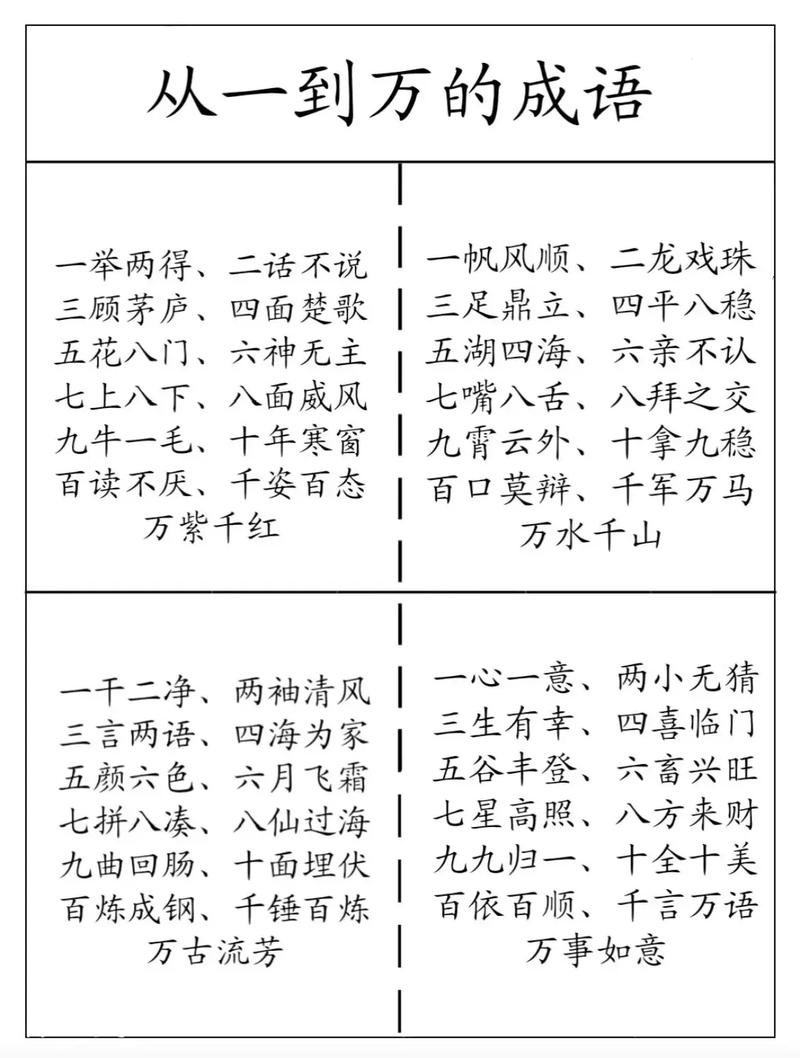 从一到万的成语
一举两得、二话不说
三顾茅庐、四面楚歌
五花八门、六神无主
七上八下、八面威风
九牛一毛、十年寒窗
百读不厌、千姿百态
万紫千红
一帆风顺、二龙戏珠
三足鼎立、四平八稳
五湖四海、六亲不认
七嘴八舌、八拜之交
九霄云外、十拿九稳
百口莫辩、千军万马
万水千山
一干二净、两袖清风
三言两语、四海为家
五颜六色、六月飞霜
七拼八凑、八仙过海
九曲回肠、十面埋伏
百炼成钢、千锤百炼
万古流芳
一心一意、两小无猜
三生有幸、四喜临门
五谷丰登、六畜兴旺
七星高照、八方来财
九九归一、十全十美
百依百顺、千言万语
万事如意